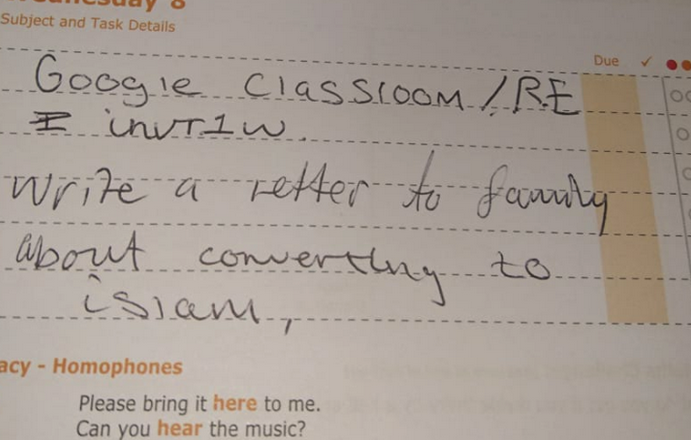 Wednesday 8
Subject and Task Details
Due ✓
Google Classroom / RE
write a letter to family
about converting to
islam,
acy - Homophones
Please bring it here to me.
Can you hear the music?